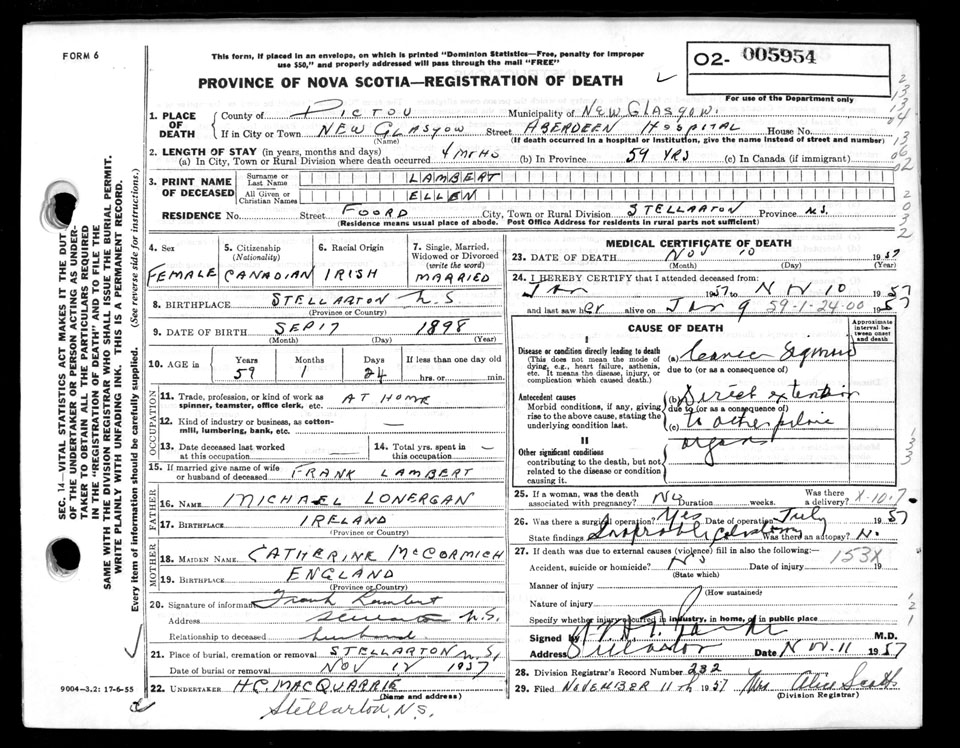 FORM 6
This form, if placed in an envelope, on which is printed "Dominion Statistics—Free, penalty for improper
use $50," and properly addressed will pass through the mail "FREE"
PROVINCE OF NOVA SCOTIA—REGISTRATION OF DEATH
02- 005954
For use of the Department only
1. PLACE OF DEATH
County of PICTOU Municipality of NEW GLASGOW.
If in City or Town NEW GLASGOW Street ABERDEEN HOSPITAL House No.
(Name) (If death occurred in a hospital or institution, give the name instead of street and number)
2. LENGTH OF STAY (in years, months and days)
(a) In City, Town or Rural Division where death occurred 4 MTHS (b) In Province 59 YRS (c) In Canada (if immigrant)
3. PRINT NAME OF DECEASED
Surname or Last Name LAMBERT
All Given or Christian Names ELLEN
RESIDENCE No. Street FOORD City, Town or Rural Division STELLARTON Province N.S.
(Residence means usual place of abode. Post Office Address for residents in rural parts not sufficient)
4. Sex
FEMALE
5. Citizenship (Nationality)
CANADIAN
6. Racial Origin
IRISH
7. Single, Married, Widowed or Divorced (write the word)
MARRIED
8. BIRTHPLACE STELLARTON N.S
(Province or Country)
9. DATE OF BIRTH SEP 17 1898
(Month) (Day) (Year)
10. AGE in Years Months Days If less than one day old
59 1 24 hrs. or min.
OCCUPATION
11. Trade, profession, or kind of work as
spinner, teamster, office clerk, etc. AT HOME
12. Kind of industry or business, as cotton-
mill, lumbering, bank, etc. —
13. Date deceased last worked
at this occupation —
14. Total yrs. spent in
this occupation —
15. If married give name of wife
or husband of deceased FRANK LAMBERT
FATHER
16. NAME MICHAEL LONERGAN
17. BIRTHPLACE IRELAND
(Province or Country)
MOTHER
18. MAIDEN NAME CATHERINE McCORMICH
19. BIRTHPLACE ENGLAND
(Province or Country)
20. Signature of informant Frank Lambert
Address Stellarton N.S.
Relationship to deceased husband
21. Place of burial, cremation or removal STELLARTON N.S.
Date of burial or removal NOV 12 1957
22. UNDERTAKER H.C. MACQUARRIE
(Name and address)
Stellarton, N.S.
9004—3.2: 17-6-55
MEDICAL CERTIFICATE OF DEATH
23. DATE OF DEATH NOV 10 1957
(Month) (Day) (Year)
24. I HEREBY CERTIFY that I attended deceased from:
Jan 1957 to Nov 10 1957
and last saw her alive on Jan 9 59-1-24-00 1957
CAUSE OF DEATH
Approximate interval between onset and death
I
Disease or condition directly leading to death
(This does not mean the mode of
dying, e.g., heart failure, asthenia,
etc. It means the disease, injury, or
complication which caused death.)
(a) Cancer Sigmoid
due to (or as a consequence of)
Antecedent causes
Morbid conditions, if any, giving
rise to the above cause, stating the
underlying condition last.
(b) Direct extension
due to (or as a consequence of)
(c) to other pelvic
organs
II
Other significant conditions
contributing to the death, but not
related to the disease or condition
causing it.
25. If a woman, was the death
associated with pregnancy? No Duration weeks. Was there a delivery? X-10.7
26. Was there a surgical operation? Yes Date of operation July 1957
State findings Inoperable Was there an autopsy? N.
27. If death was due to external causes (violence) fill in also the following:—
Accident, suicide or homicide? No Date of injury 153X 19
(State which)
Manner of injury
(How sustained)
Nature of injury
Specify whether injury occurred in industry, in home, or in public place
Signed by M.D.
Address Stellarton Date Nov. 11 1957
28. Division Registrar's Record Number 232
29. Filed NOVEMBER 11th 1957 Mrs. Alice Scott
(Division Registrar)
SEC. 14—VITAL STATISTICS ACT MAKES IT THE DUTY
OF THE UNDERTAKER OR PERSON ACTING AS UNDER-
TAKER TO OBTAIN ALL THE PARTICULARS REQUIRED
IN THE "REGISTRATION OF DEATH" AND TO FILE THE
SAME WITH THE DIVISION REGISTRAR WHO SHALL ISSUE THE BURIAL PERMIT.
WRITE PLAINLY WITH UNFADING INK. THIS IS A PERMANENT RECORD.
Every item of information should be carefully supplied. (See reverse side for instructions.)